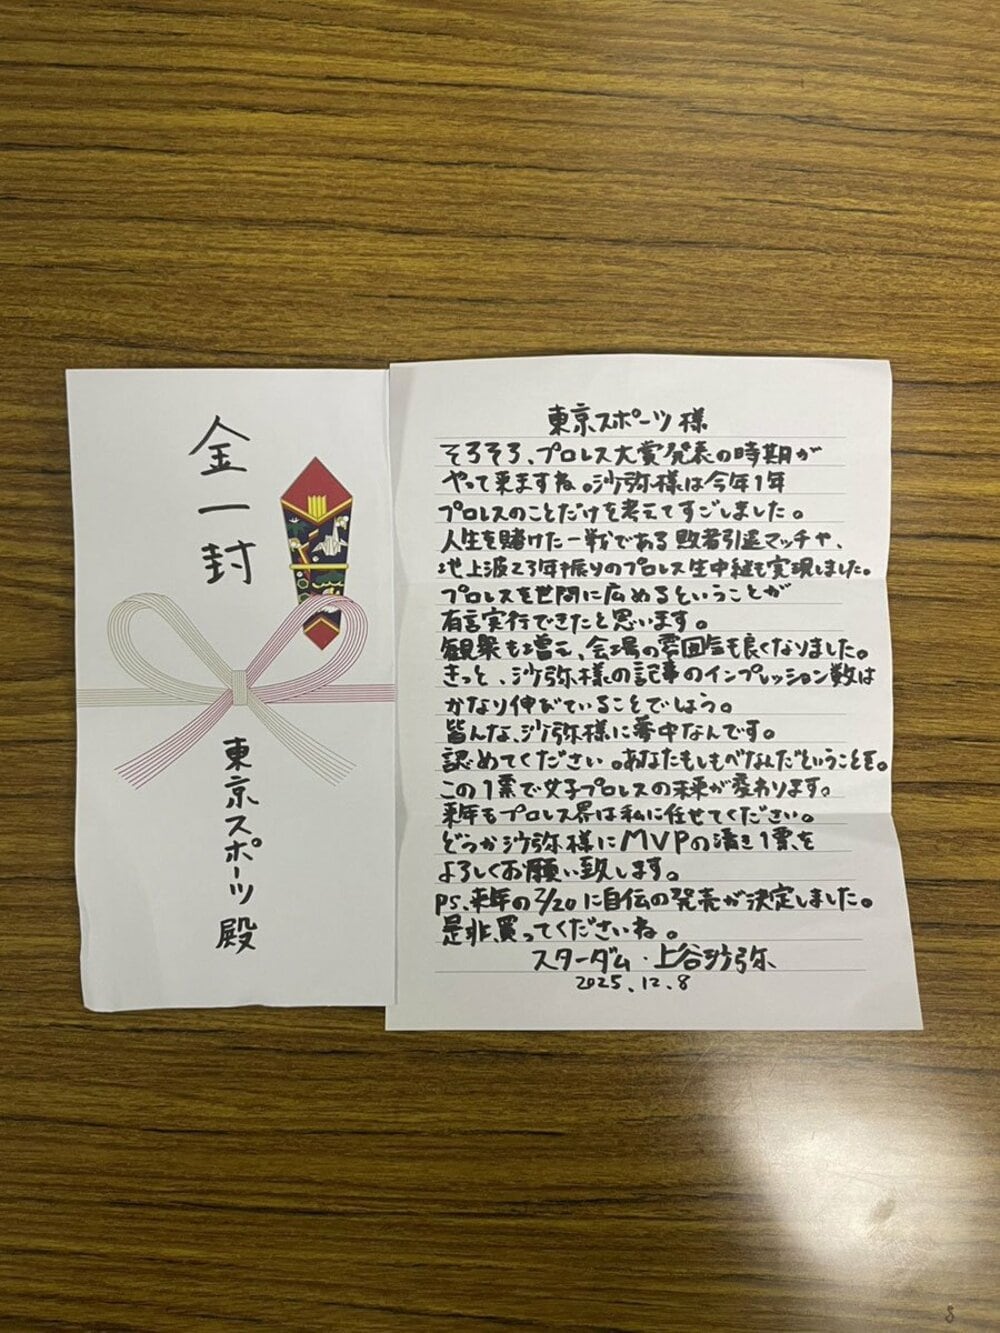 金一封
東京スポーツ 殿
東京スポーツ 様
そろそろ、プロレス大賞発表の時期が
やって来ますね。沙弥様は今年1年
プロレスのことだけを考えてすごしました。
人生を賭けた一戦である敗者引退マッチや、
地上波23年振りのプロレス生中継も実現しました。
プロレスを世間に広めるということが
有言実行できたと思います。
観衆も増え、会場の雰囲気も良くなりました。
きっと、沙弥様の記事のインプレッション数は
かなり伸びていることでしょう。
皆んな、沙弥様に夢中なんです。
認めてください。あなたもしもべなんだということを。
この1票で女子プロレスの未来が変わります。
来年もプロレス界は私に任せてください。
どうか沙弥様にMVPの清き1票を
よろしくお願い致します。
PS、来年の2/20に自伝の発売が決定しました。
是非、買ってくださいね。
スターダム・上谷沙弥
2025.12.8